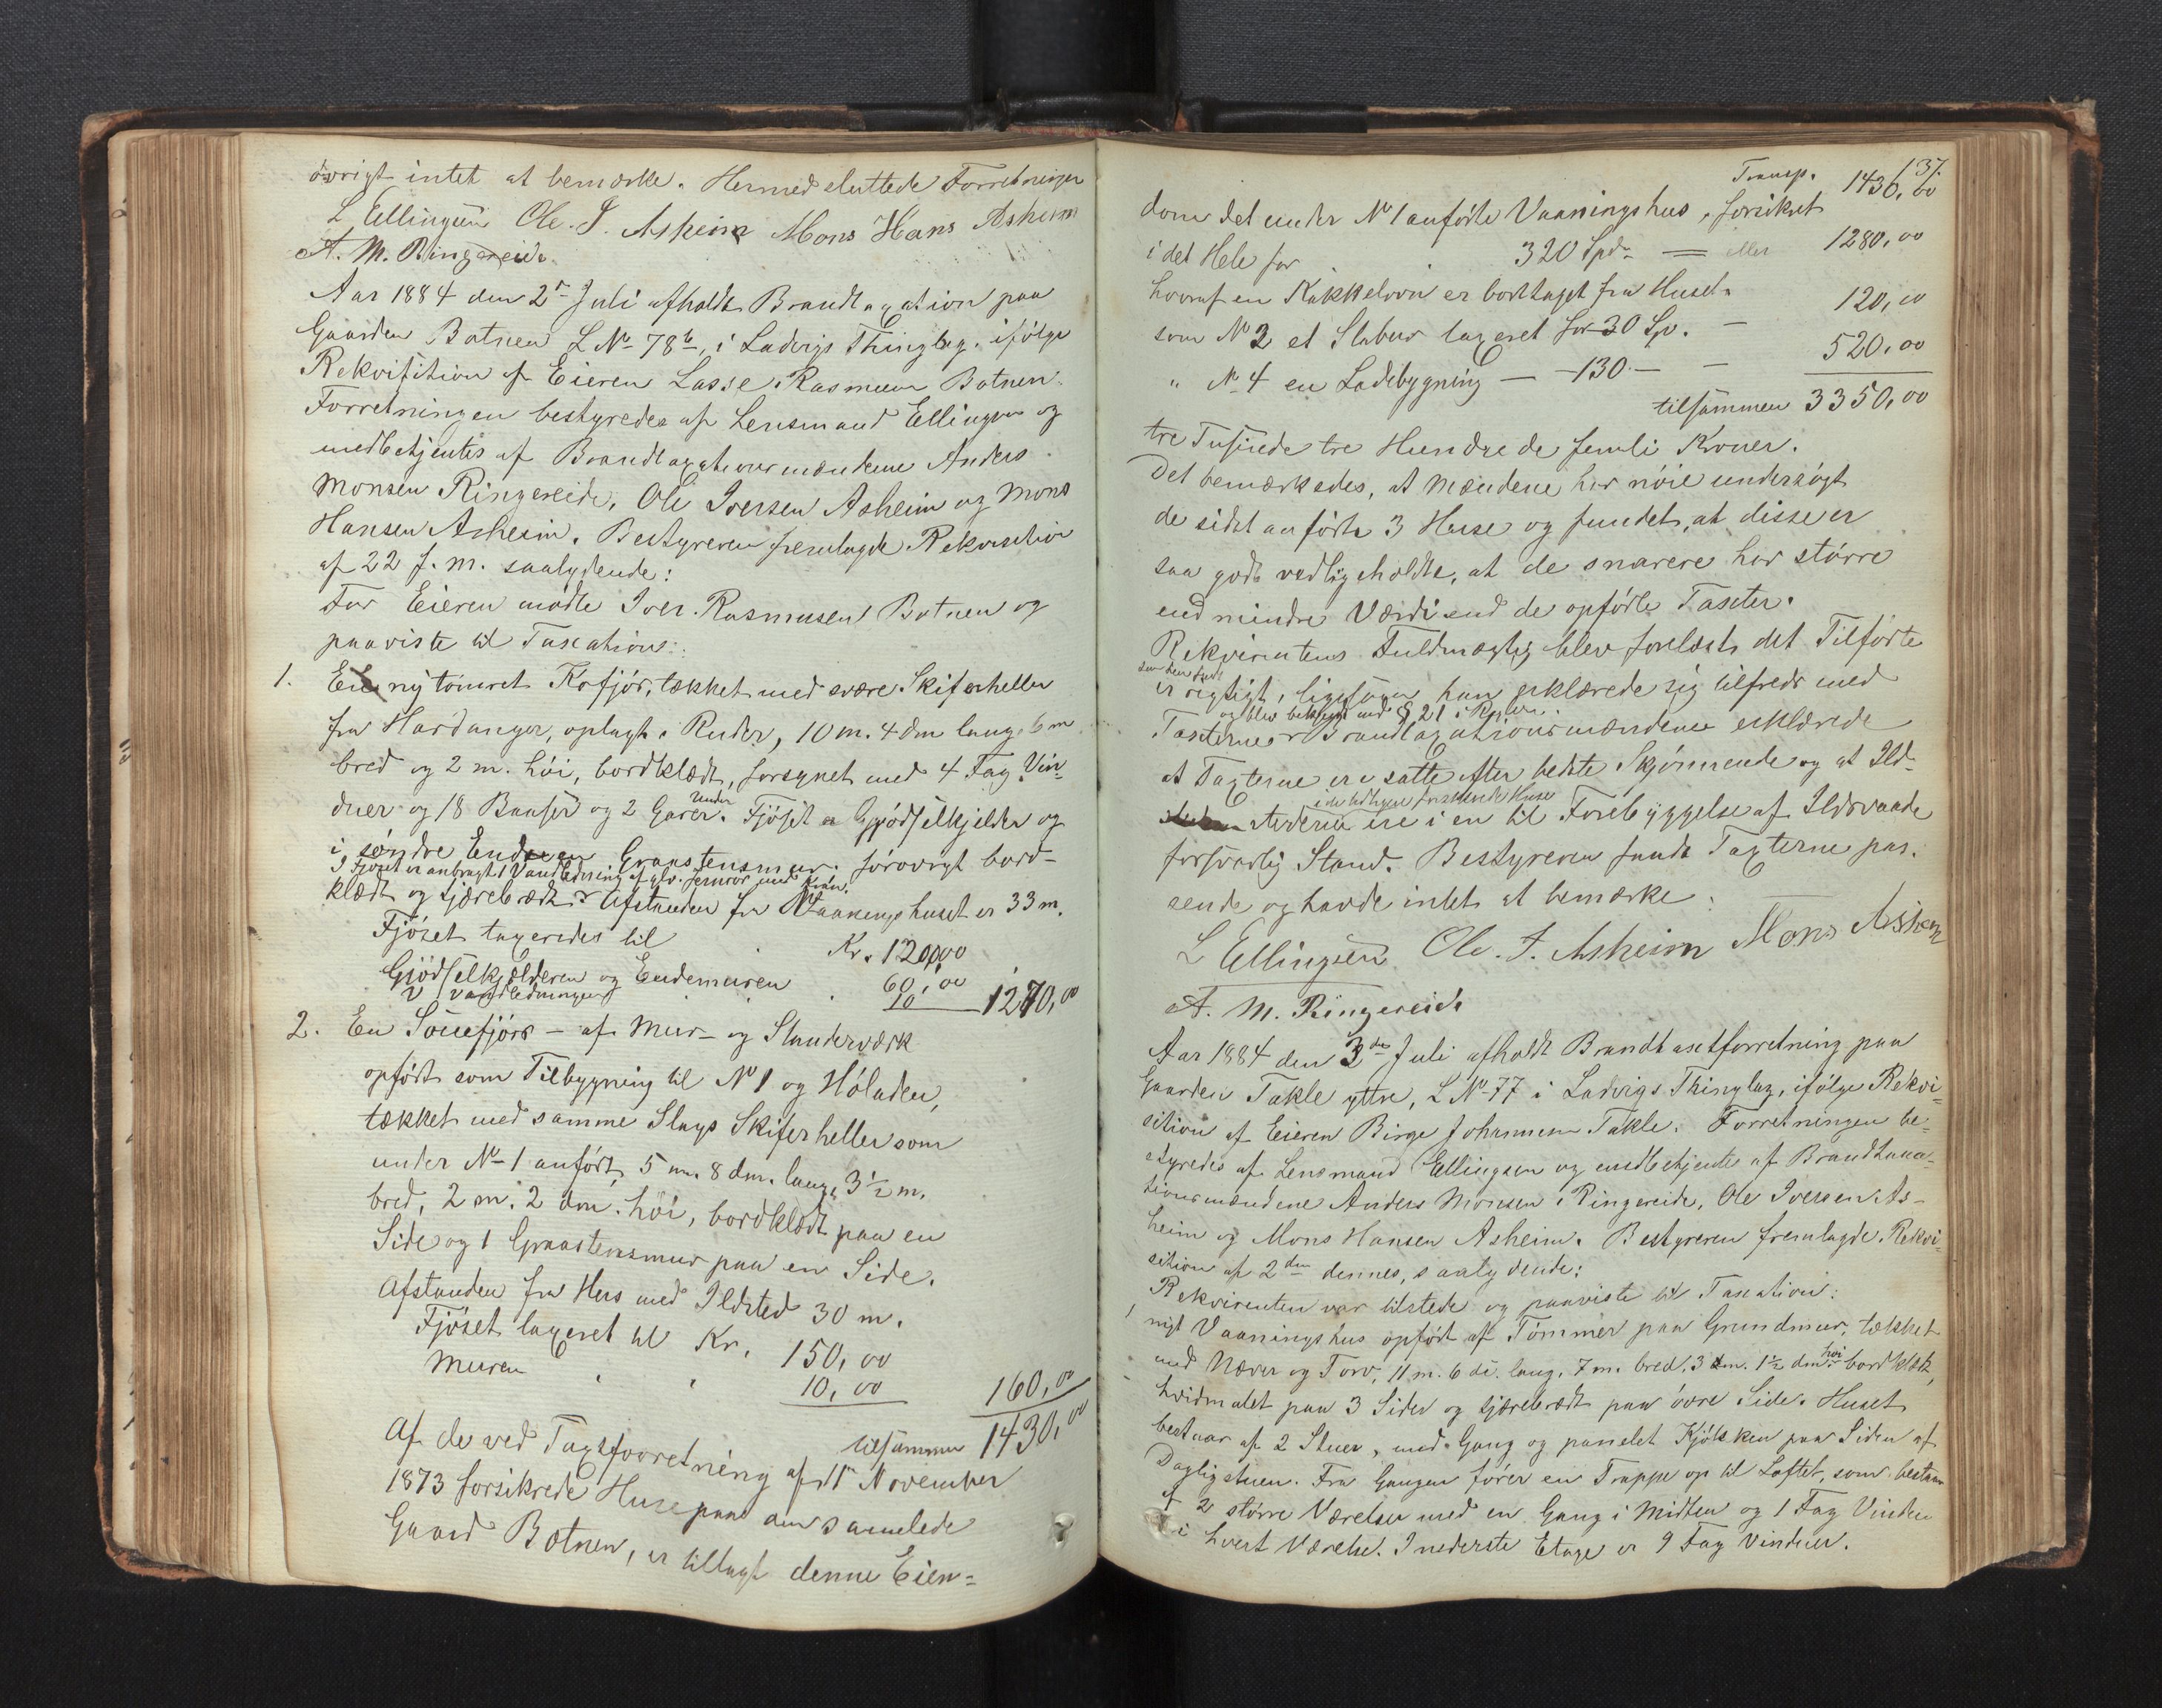 øvrigt intet at bemærke. Hermed sluttede Forretningen
L Ellingsen Ole. I. Asheim Mons Hans Asheim
A. M. Ringereide
Aar 1884 den 2den Juli afholdt Brandtaxation paa
Gaarden Botnen L No 78b, i Ladvigs Thinglag. ifølge
Rekvisition af Eieren Lasse Rasmusen Botnen.
Forretningen bestyredes af Lensmand Ellingsen og
medbetjentes af Brandtaxationsmændene Anders
Monsen Ringereide, Ole Iversen Asheim og Mons
Hansen Asheim. Bestyreren fremlagde Rekvisition
af 22 f. m. saalydende:
For Eieren mødte Iver Rasmusen Botnen og
paaviste til Taxation:
1. En ny tømret Kofjøs, tækket med svære Skiferheller
fra Hardanger, oplagt i Ruder, 10 m. 4 dm lang 6 m
bred og 2 m. høi, bordklædt, forsynet med 4 Fag Vin-
duer og 18 Baaser og 2 Garer. Under Fjøset er Gjødselkjelder og
i søndre Ende en Graastensmur. forøvrigt bord-
I Fjøset er anbragt 1 Vandledning af galv. Jernrør med Kran.
klædt og tjærebrædt. Afstanden fra Vaaningshuset er 33 m.
Fjøset taxeredes til Kr. 1200,00
Gjødselkjælderen og Endemuren 60,00
V Vandledningen 10 1270,00
2. En Souefjøs - af Mur- og Standerværk
opført som Tilbygning til No 1 og Høladen,
tækket med samme Slags Skiferheller som
under No 1 anført, 5 m. 8 dm. lang, 3 1/2 m.
bred, 2 m. 2 dm. høi, bordklædt paa en
Side og 1 Graastensmur paa en Side.
Afstanden fra Hus med Ildsted 30 m.
Fjøset taxeret til Kr. 150,00
Muren 10,00 160,00
tilsammen 1430,00
Af de ved Taxtforretning af 11 November
1873 forsikrede Huse paa den samlede
Gaard Botnen, er tillagt denne Eien-
137.
Transp. 1430,00
dom det under No 1 anførte Vaaningshus, forsikret
i det Hele for 320 Spd. = eller 1280,00
hvoraf en Kakkelovn er borttaget fra Huset.
som No 2 et Stabur taxeret for 30 Sp. - 120,00
" No 4 en Ladebygning - - 130 - - 520,00
tilsammen 3350,00
tre Tusinde tre Hundrede femti Kroner.
Det bemærkedes, at Mændene har nøie undersøgt
de sidst anførte 3 Huse og fundet, at disse er
saa godt vedligeholdte, at de snarere har større
end mindre Værdi end de opførte Taxter.
Rekvirentens Fuldmægtig blev forelæst det Tilførte
som han fandt
er rigtigt, ligesom han erklærede sig tilfreds med
og blev bekjendt med § 21 i
Taxterne. Brandtaxationsmændene erklærede
at Taxterne ere satte efter bedste Skjønnende og at Ild-
i de tidligere forsikrede Huse
stederne ere i en til Forebyggelse af Ildsvaade
forsvarlig Stand. Bestyreren fandt Taxterne pas-
sende og havde intet at bemærke:
L Ellingsen Ole. I. Asheim Mons Asheim
A. M. Ringereide
Aar 1884 den 3die Juli afholdt Brandtaxtforretning paa
Gaarden Takle yttre, L No 77 i Ladvigs Thinglag, ifølge Rekvi-
sition af Eieren Birge Johannesen Takle. Forretningen be-
styredes af Lensmand Ellingsen og medbetjentes af Brandtaxa-
tionsmændene Anders Monsen Ringereide, Ole Iversen As-
heim og Mons Hansen Asheim. Bestyreren fremlagde Rekvi-
sition af 2den dennes, saalydende:
Rekvirenten var tilstede og paaviste til Taxation:
1 nyt Vaaningshus opført af Tømmer paa Grundmur, tækket
med Næver og Torv, 11 m. 6 de. lang, 7 m. bred, 3 m. 1 1/2 dm høi. bordklædt,
hvidmalet paa 3 Sider og tjærebrædt paa øvre Side. Huset
bestaar af 2 Stuer, med Gang og panelet Kjøkken paa Siden af
Dagligstuen. Fra Gangen fører en Trappe op til Loftet, som bestaar
af 2 større Værelser med en Gang i Midten og 1 Fag Vinduer
i hvert Værelse. I nederste Etage er 9 Fag Vinduer.